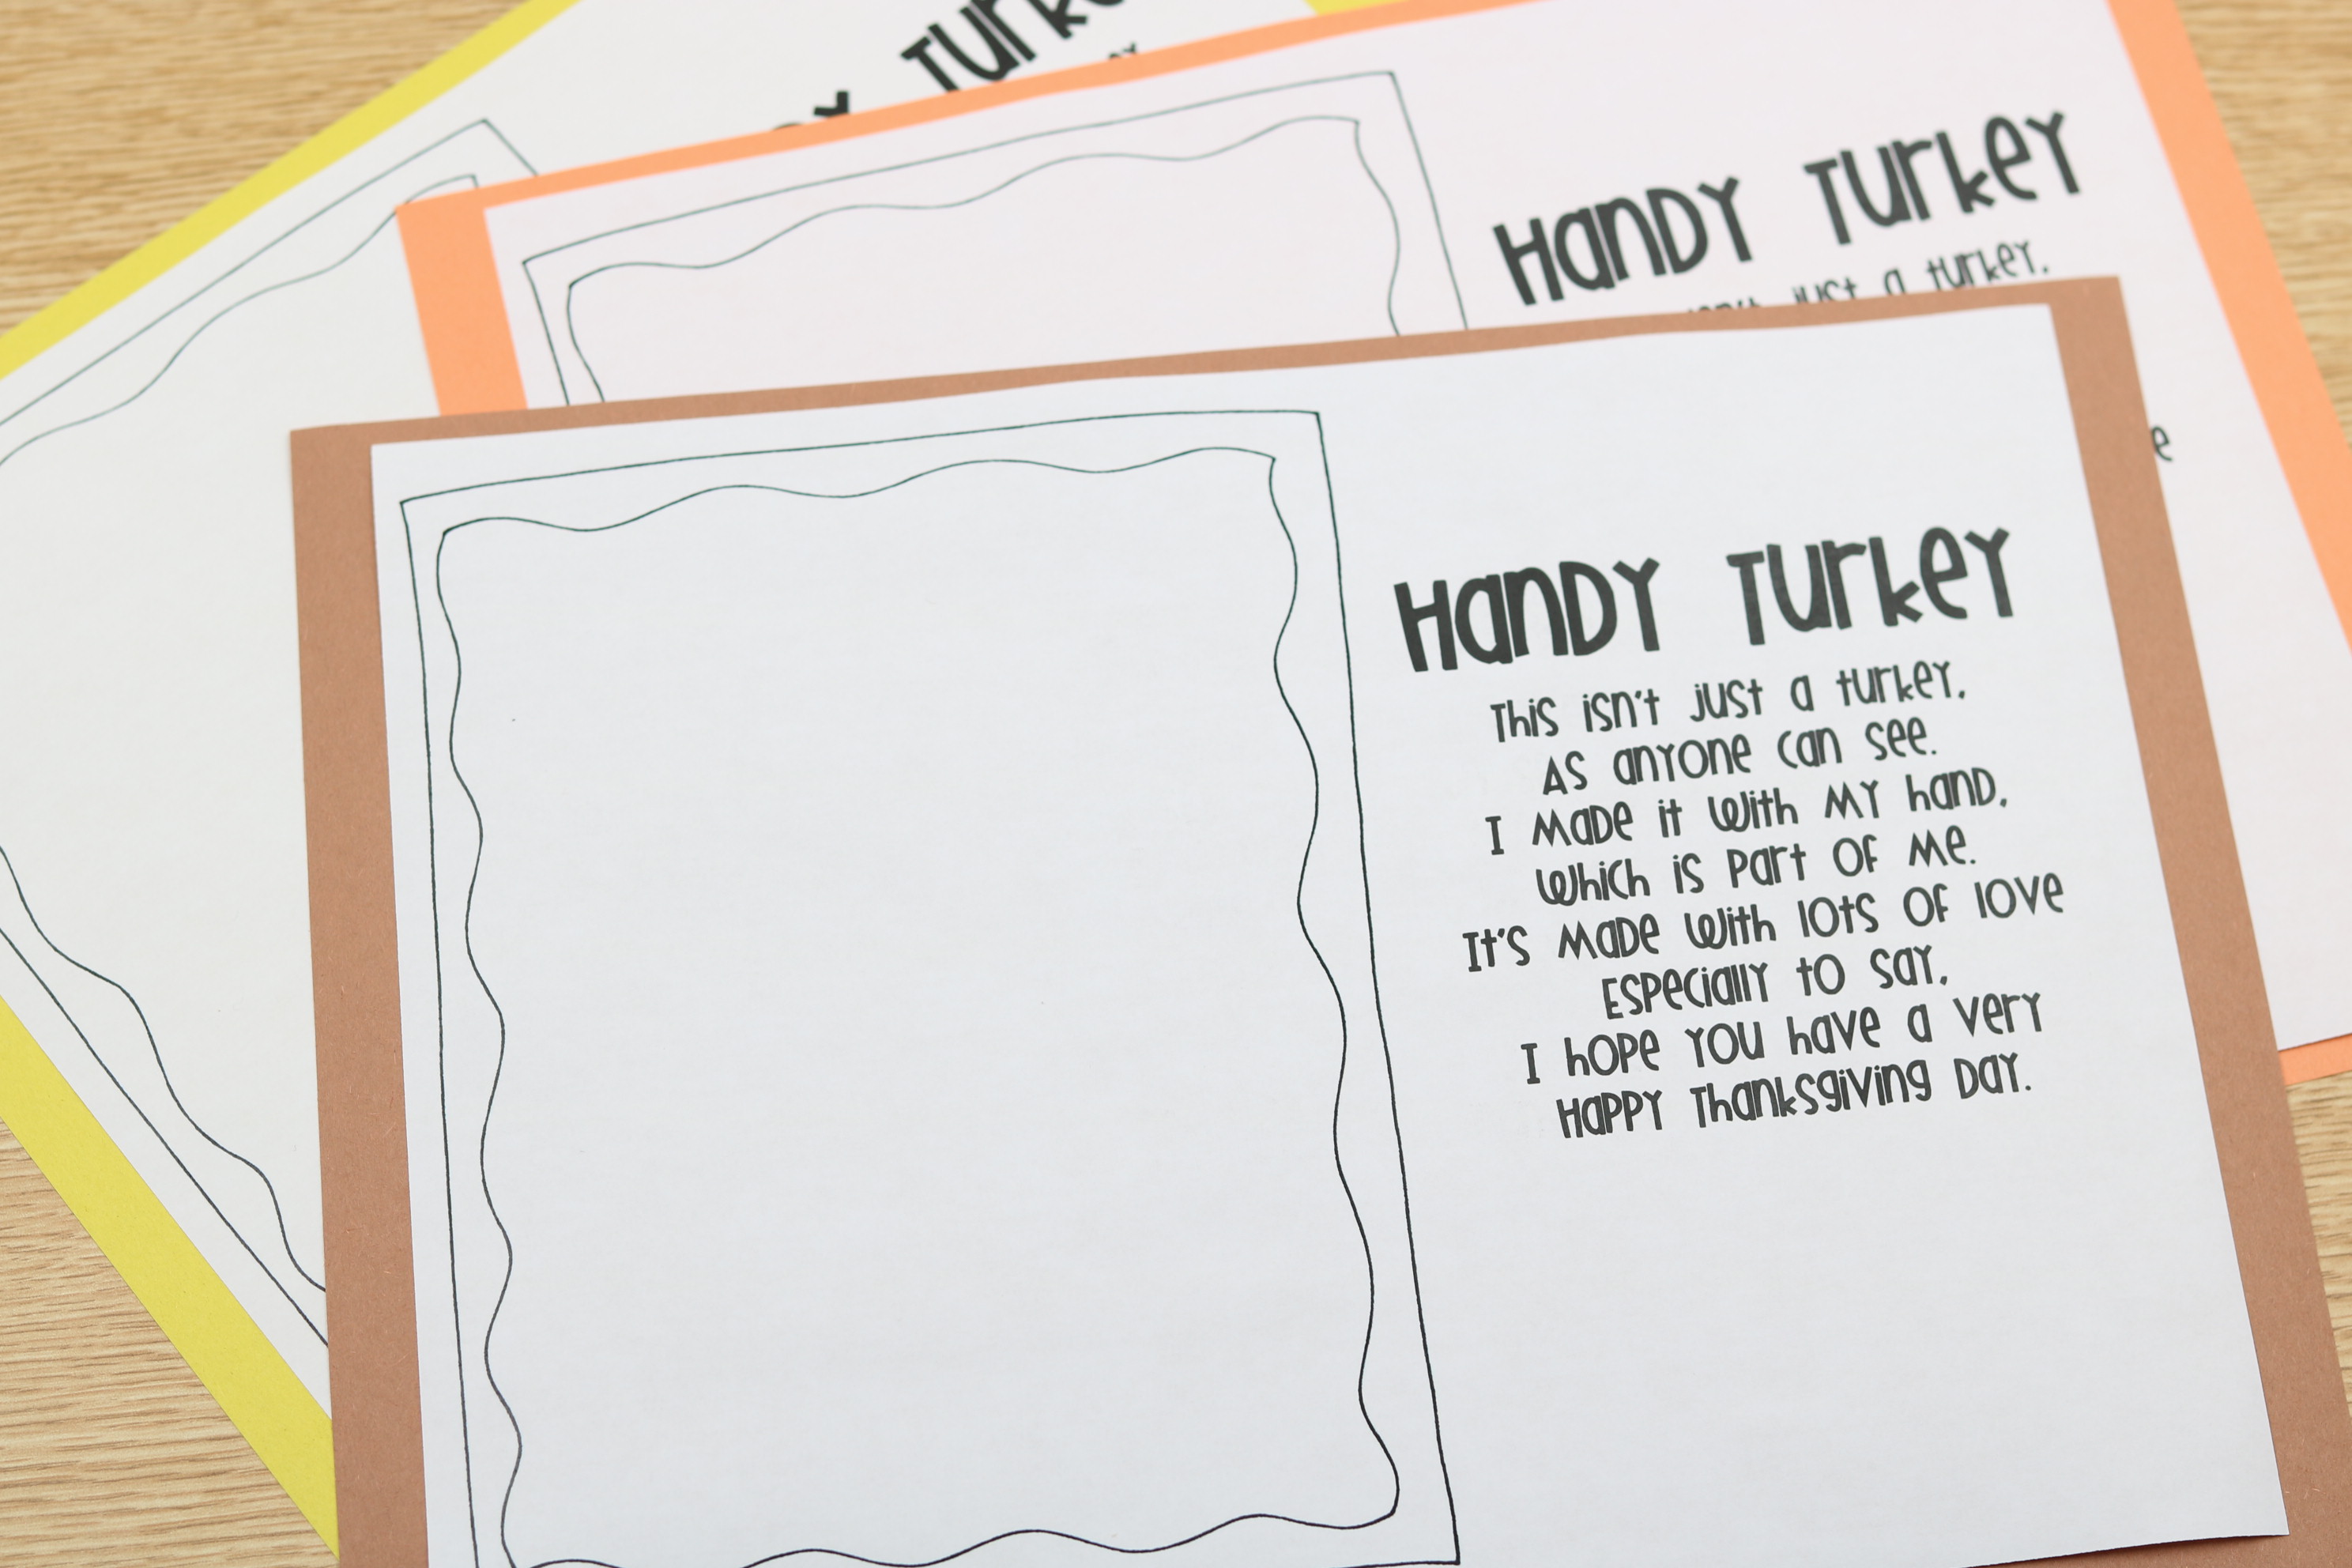 Turk
HanDY Turkey
isn't just a turkey,
e
HanDY Turkey
This isn't just a turkey,
As anyone can see.
I Made it with My hand,
which is part of Me.
It's Made with lots of love
Especially to say,
I hope you have a very
Happy Thanksgiving Day.